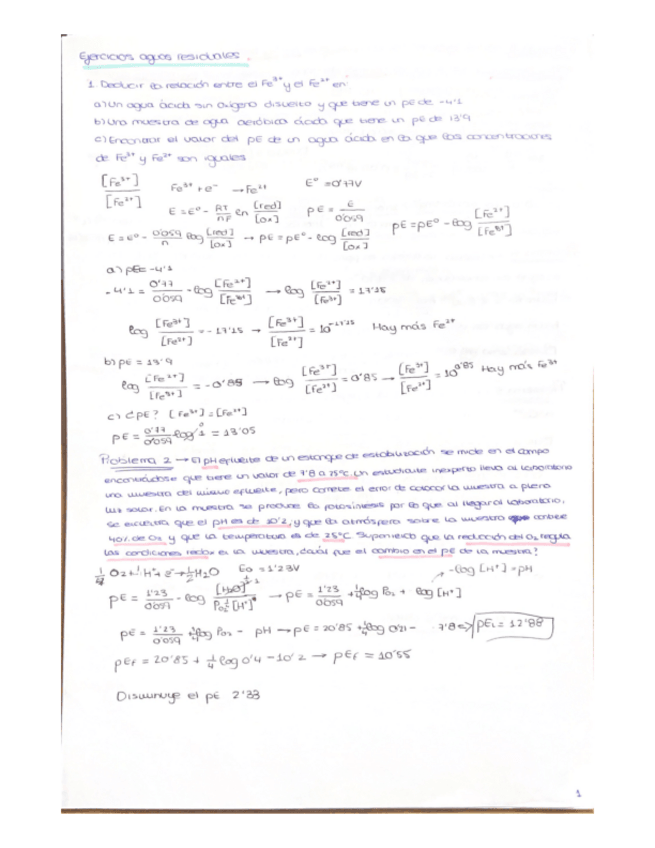 Ejercicios aguas residuales.
1. Deducir la relación entre el Fe³⁺ y el Fe²⁺ en:
a) Un agua ácida sin oxígeno disuelto y que tiene un pE de -4'1
b) Una muestra de agua aeróbica ácida que tiene un pE de 13'9
c) Encontrar el valor del pE de un agua ácida en la que las concentraciones
de Fe³⁺ y Fe²⁺ son iguales
[Fe³⁺]/[Fe²⁺] Fe³⁺ + e⁻ → Fe²⁺ E° = 0'77V
E = E° - RT/nF ln [red]/[ox] pE = E/0'059 pE = pE° - log [Fe²⁺]/[Fe³⁺]
E = E° - 0'059/n log [red]/[ox] → pE = pE° - log [red]/[ox]
a) pE = -4'1
-4'1 = 0'77/0'059 - log [Fe²⁺]/[Fe³⁺] → log [Fe²⁺]/[Fe³⁺] = 17'15
log [Fe³⁺]/[Fe²⁺] = -17'15 → [Fe³⁺]/[Fe²⁺] = 10⁻¹⁷'¹⁵ Hay más Fe²⁺
b) pE = 13'9
log [Fe²⁺]/[Fe³⁺] = -0'85 → log [Fe³⁺]/[Fe²⁺] = 0'85 → [Fe³⁺]/[Fe²⁺] = 10⁰'⁸⁵ Hay más Fe³⁺
c) ¿pE? [Fe³⁺] = [Fe²⁺]
pE = 0'77/0'059 log 1 = 13'05
Problema 2 → El pH efluente de un estanque de estabilización se mide en el campo
encontrándose que tiene un valor de 7'8 a 25°C. Un estudiante inexperto lleva al laboratorio
una muestra del mismo efluente, pero comete el error de colocar la muestra a plena
luz solar. En la muestra se produce la fotosíntesis por lo que al llegar al laboratorio,
se encuentra que el pH es de 10'2, y que la atmósfera sobre la muestra contiene
40% de O₂ y que la temperatura es de 25°C. Suponiendo que la reducción del O₂ regula
las condiciones redox es la muestra, ¿cuál fue el cambio en el pE de la muestra?
1/4 O₂ + H⁺ + e⁻ → 1/2 H₂O E₀ = 1'23V -log [H⁺] = pH
pE = 1'23/0'059 - log [H₂O]/[H⁺] → pE = 1'23/0'059 + 1/4 log Po₂ + log [H⁺]
pE = 1'23/0'059 + 1/4 log Po₂ - pH → pE = 20'85 + 1/4 log 0'21 - 7'8 => pEᵢ = 12'88
pE_f = 20'85 + 1/4 log 0'4 - 10'2 → pE_f = 10'55
Disminuye el pE 2'33
1